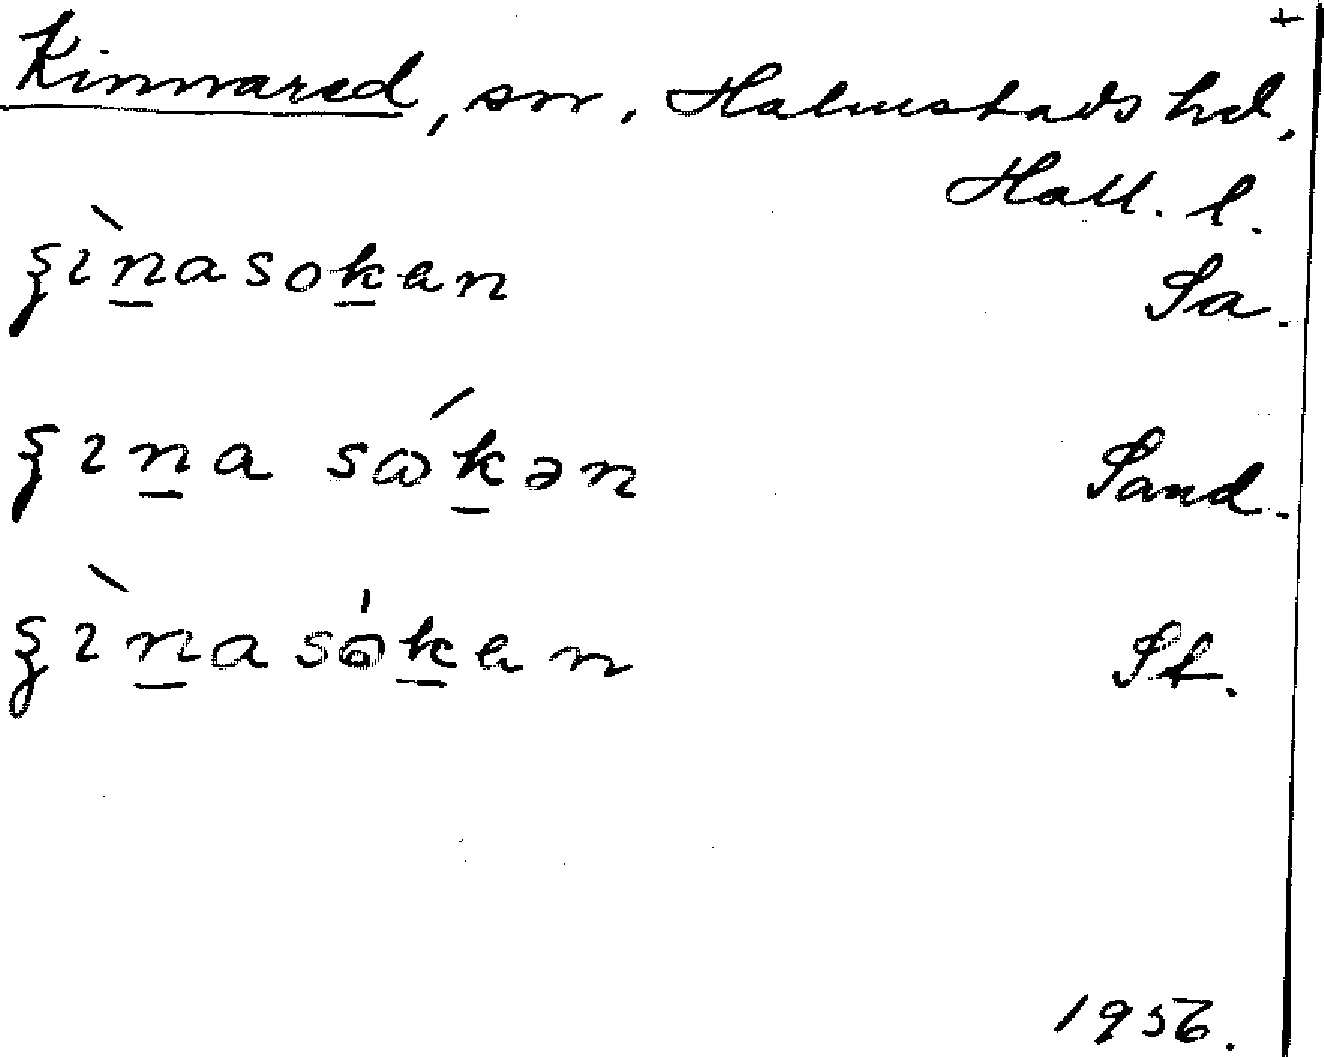 +
Kinnared, sn, Halmstads hd,
Hall. l.
ʂìn̲asok̲en Sa.
ʂin̲a sɷ́k̲ən Sand.
ʂìn̲asɷ́k̲en St.
1956.